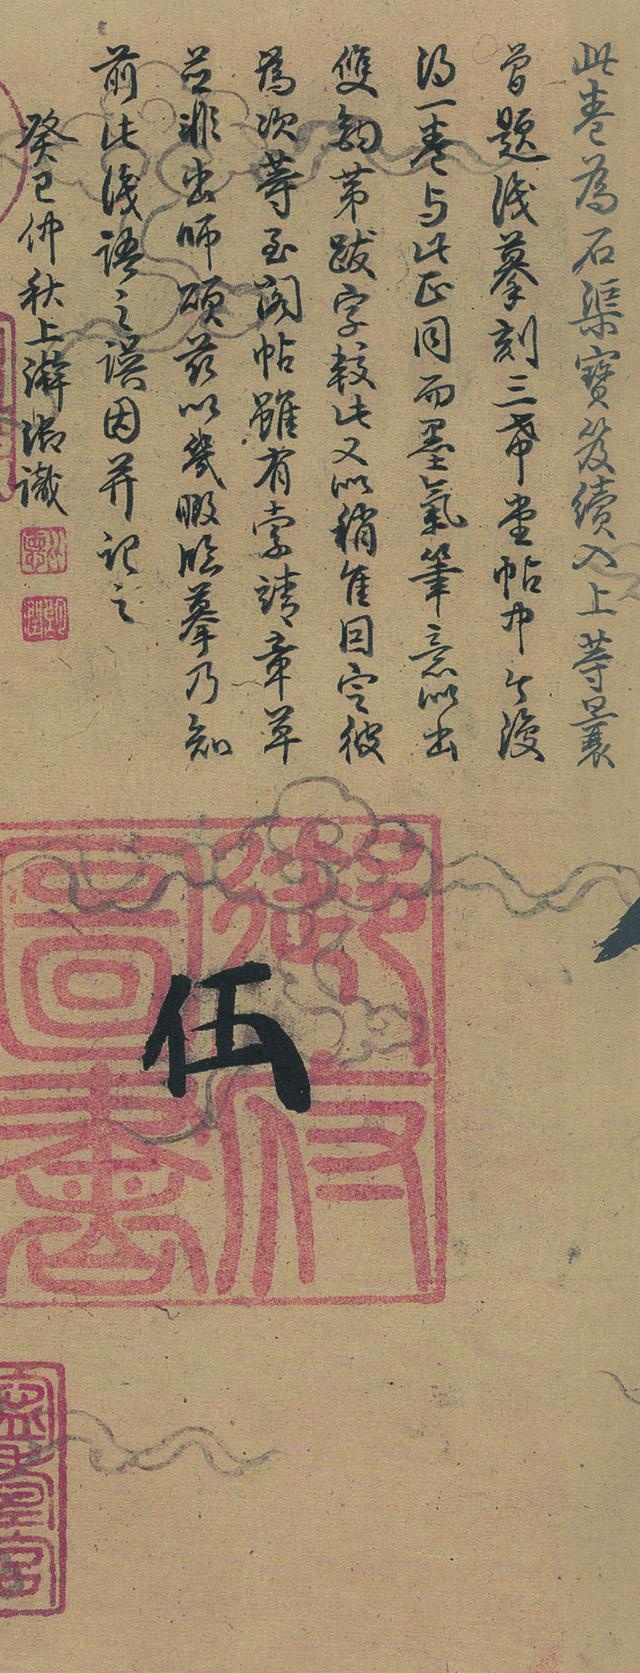 此卷為石渠寶笈續入上等曩
曾題識摹刻三希堂帖中今復
得一卷與此正同而墨氣筆意似出
雙鉤第跋字較此又似稍隹因定彼
為次等至閣帖雖有索靖章草
並非出師頌茲以幾暇臨摹乃知
前此識語之誤因并記之
癸巳仲秋上澣御識
伍
御府
圖書